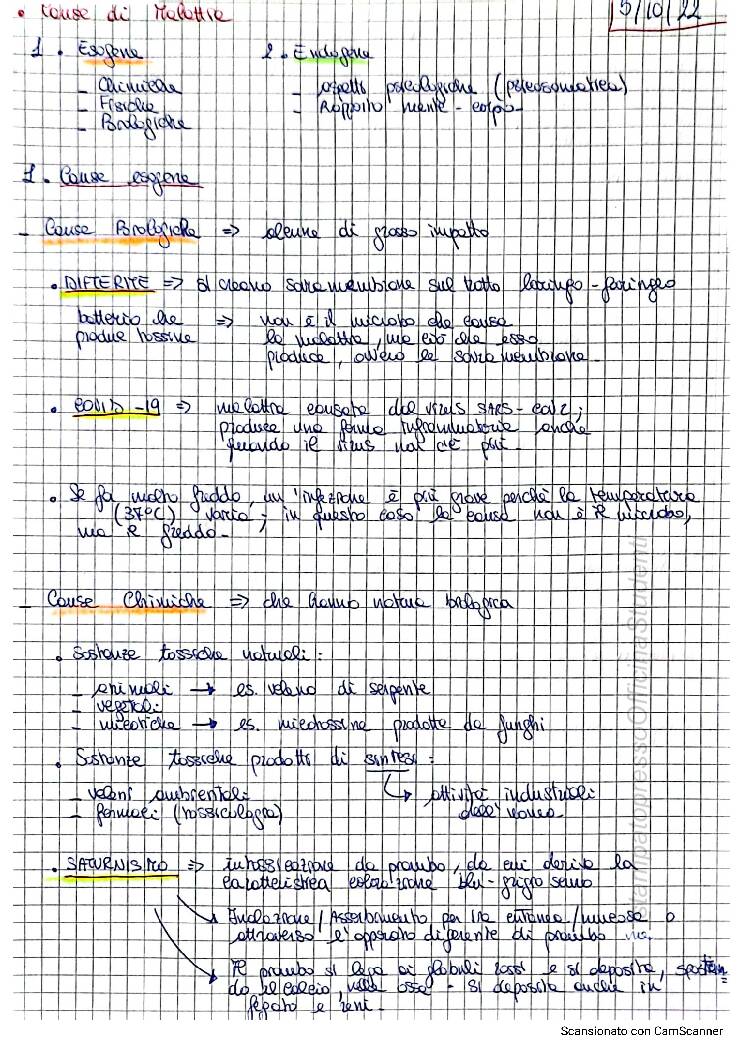 • Cause di Malattia
5/10/22
1. Esogene
2. Endogene
- Chimiche
- Fisiche
- Biologiche
- aspetti psicologiche (psicosomatica)
- Rapporto mente-corpo
1. Cause esogene
- Cause Biologiche => alcune di grosso impatto
• DIFTERITE => si creano saramembrane sul tratto laringo-faringeo
batterio che produce tossine => non è il microbo che causa
la malattia, ma ciò che esso
produce, ovvero le saramembrane.
• COVID-19 => malattia causata dal virus SARS-CoV2;
produce una forma infiammatoria anche
quando il virus non c'è più.
• Se fa molto freddo, un'infezione è più grave perché la temperatura
(37°C) varia; in questo caso la causa non è il microbo,
ma il freddo.
- Cause Chimiche => che hanno natura biologica
• Sostanze tossiche naturali:
- animali → es. veleno di serpente
- vegetali
- micotiche → es. micotossine prodotte da funghi
• Sostanze tossiche prodotti di sintesi:
- veleni ambientali
- farmaci (tossicologia)
attività industriali
dell'uomo.
• SATURNISMO => intossicazione da piombo, da cui deriva la
caratteristica colorazione blu-grigio
Inalazione/Assorbimento per via cutanea/mucosa o
attraverso l'apparato digerente di piombo
Il piombo si lega ai globuli rossi e si deposita, spostan=
do il calcio, nelle ossa - si deposita anche in
fegato e reni.
stampatopressoOfficinaStudenti
Scansionato con CamScanner